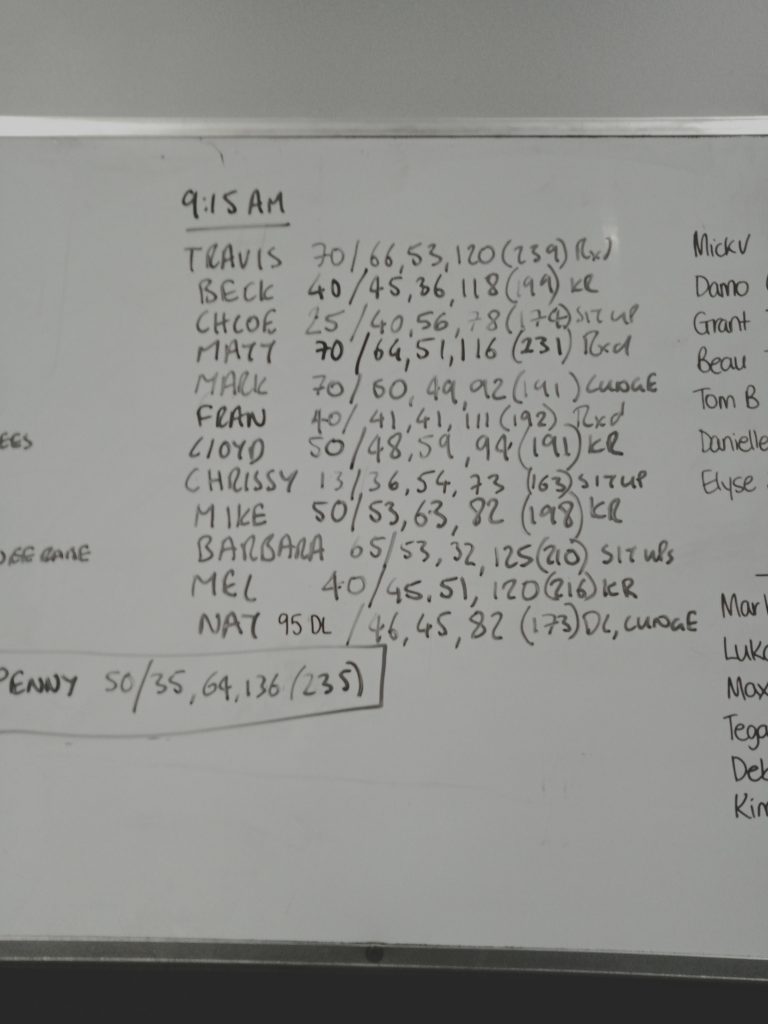 9:15 AM
TRAVIS 70/66,53,120(239) Rxd
BECK 40/45,36,118(199) KR
CHLOE 25/40,56,78(174) SIT UP
MATT 70/64,51,116 (231) Rxd
MARK 70/60,49,92(191) CUDGE
FRAN 40/41,41,111(192) Rxd
LLOYD 50/48,59,94(191) KR
CHRISSY 13/36,54,73 (163) SIT UP
MIKE 50/53,63,82 (198) KR
BARBARA 65/53,32,125(210) SIT UPS
MEL 40/45,51,120(216) KR
NAT 95 DL /46,45,82 (173) DL, CUDGE
PENNY 50/35,64,136 (235)
EES
Micky
Damo
Grant
Beau
Tom B
Danielle
Elyse
Mar
Luka
Max
Tega
Deb
Kim